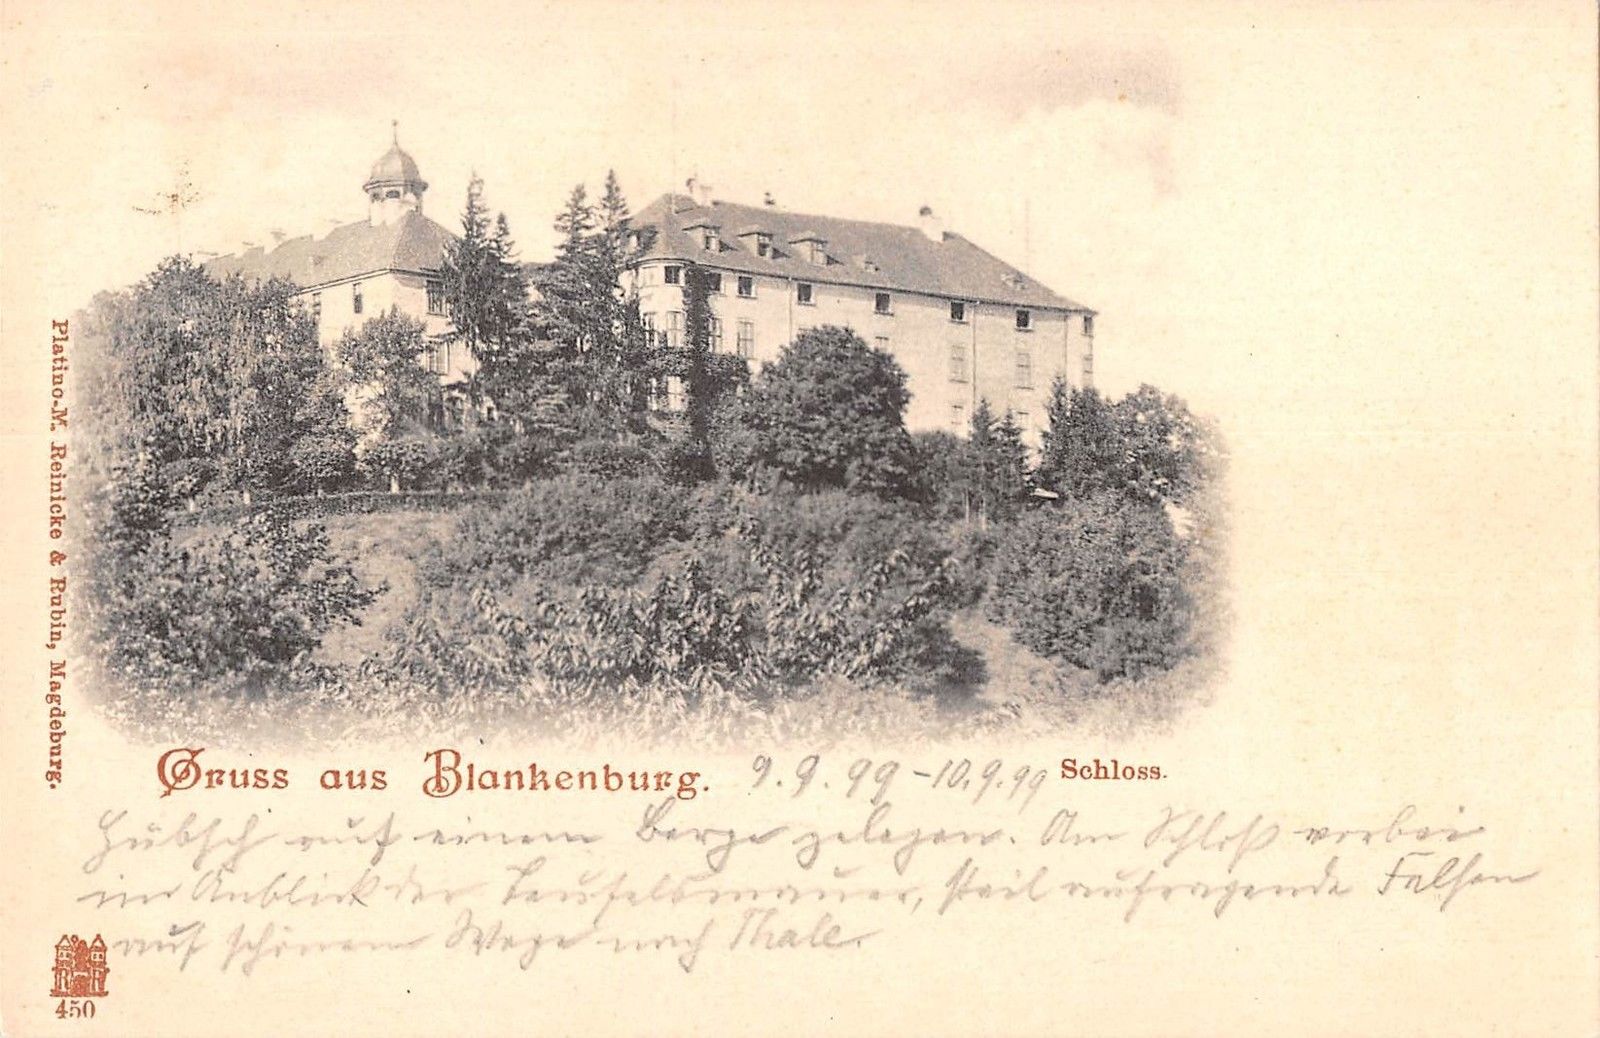 Platino-M. Reinicke & Rubin, Magdeburg.
Gruss aus Blankenburg. 9.9.99-10.9.99 Schloss.
Hübsch auf einem Berge gelegen. Am Schloß vorbei
im Anblick der Teufelsmauer, steil aufragende Felsen
auf schönem Wege nach Thale.
RR
450